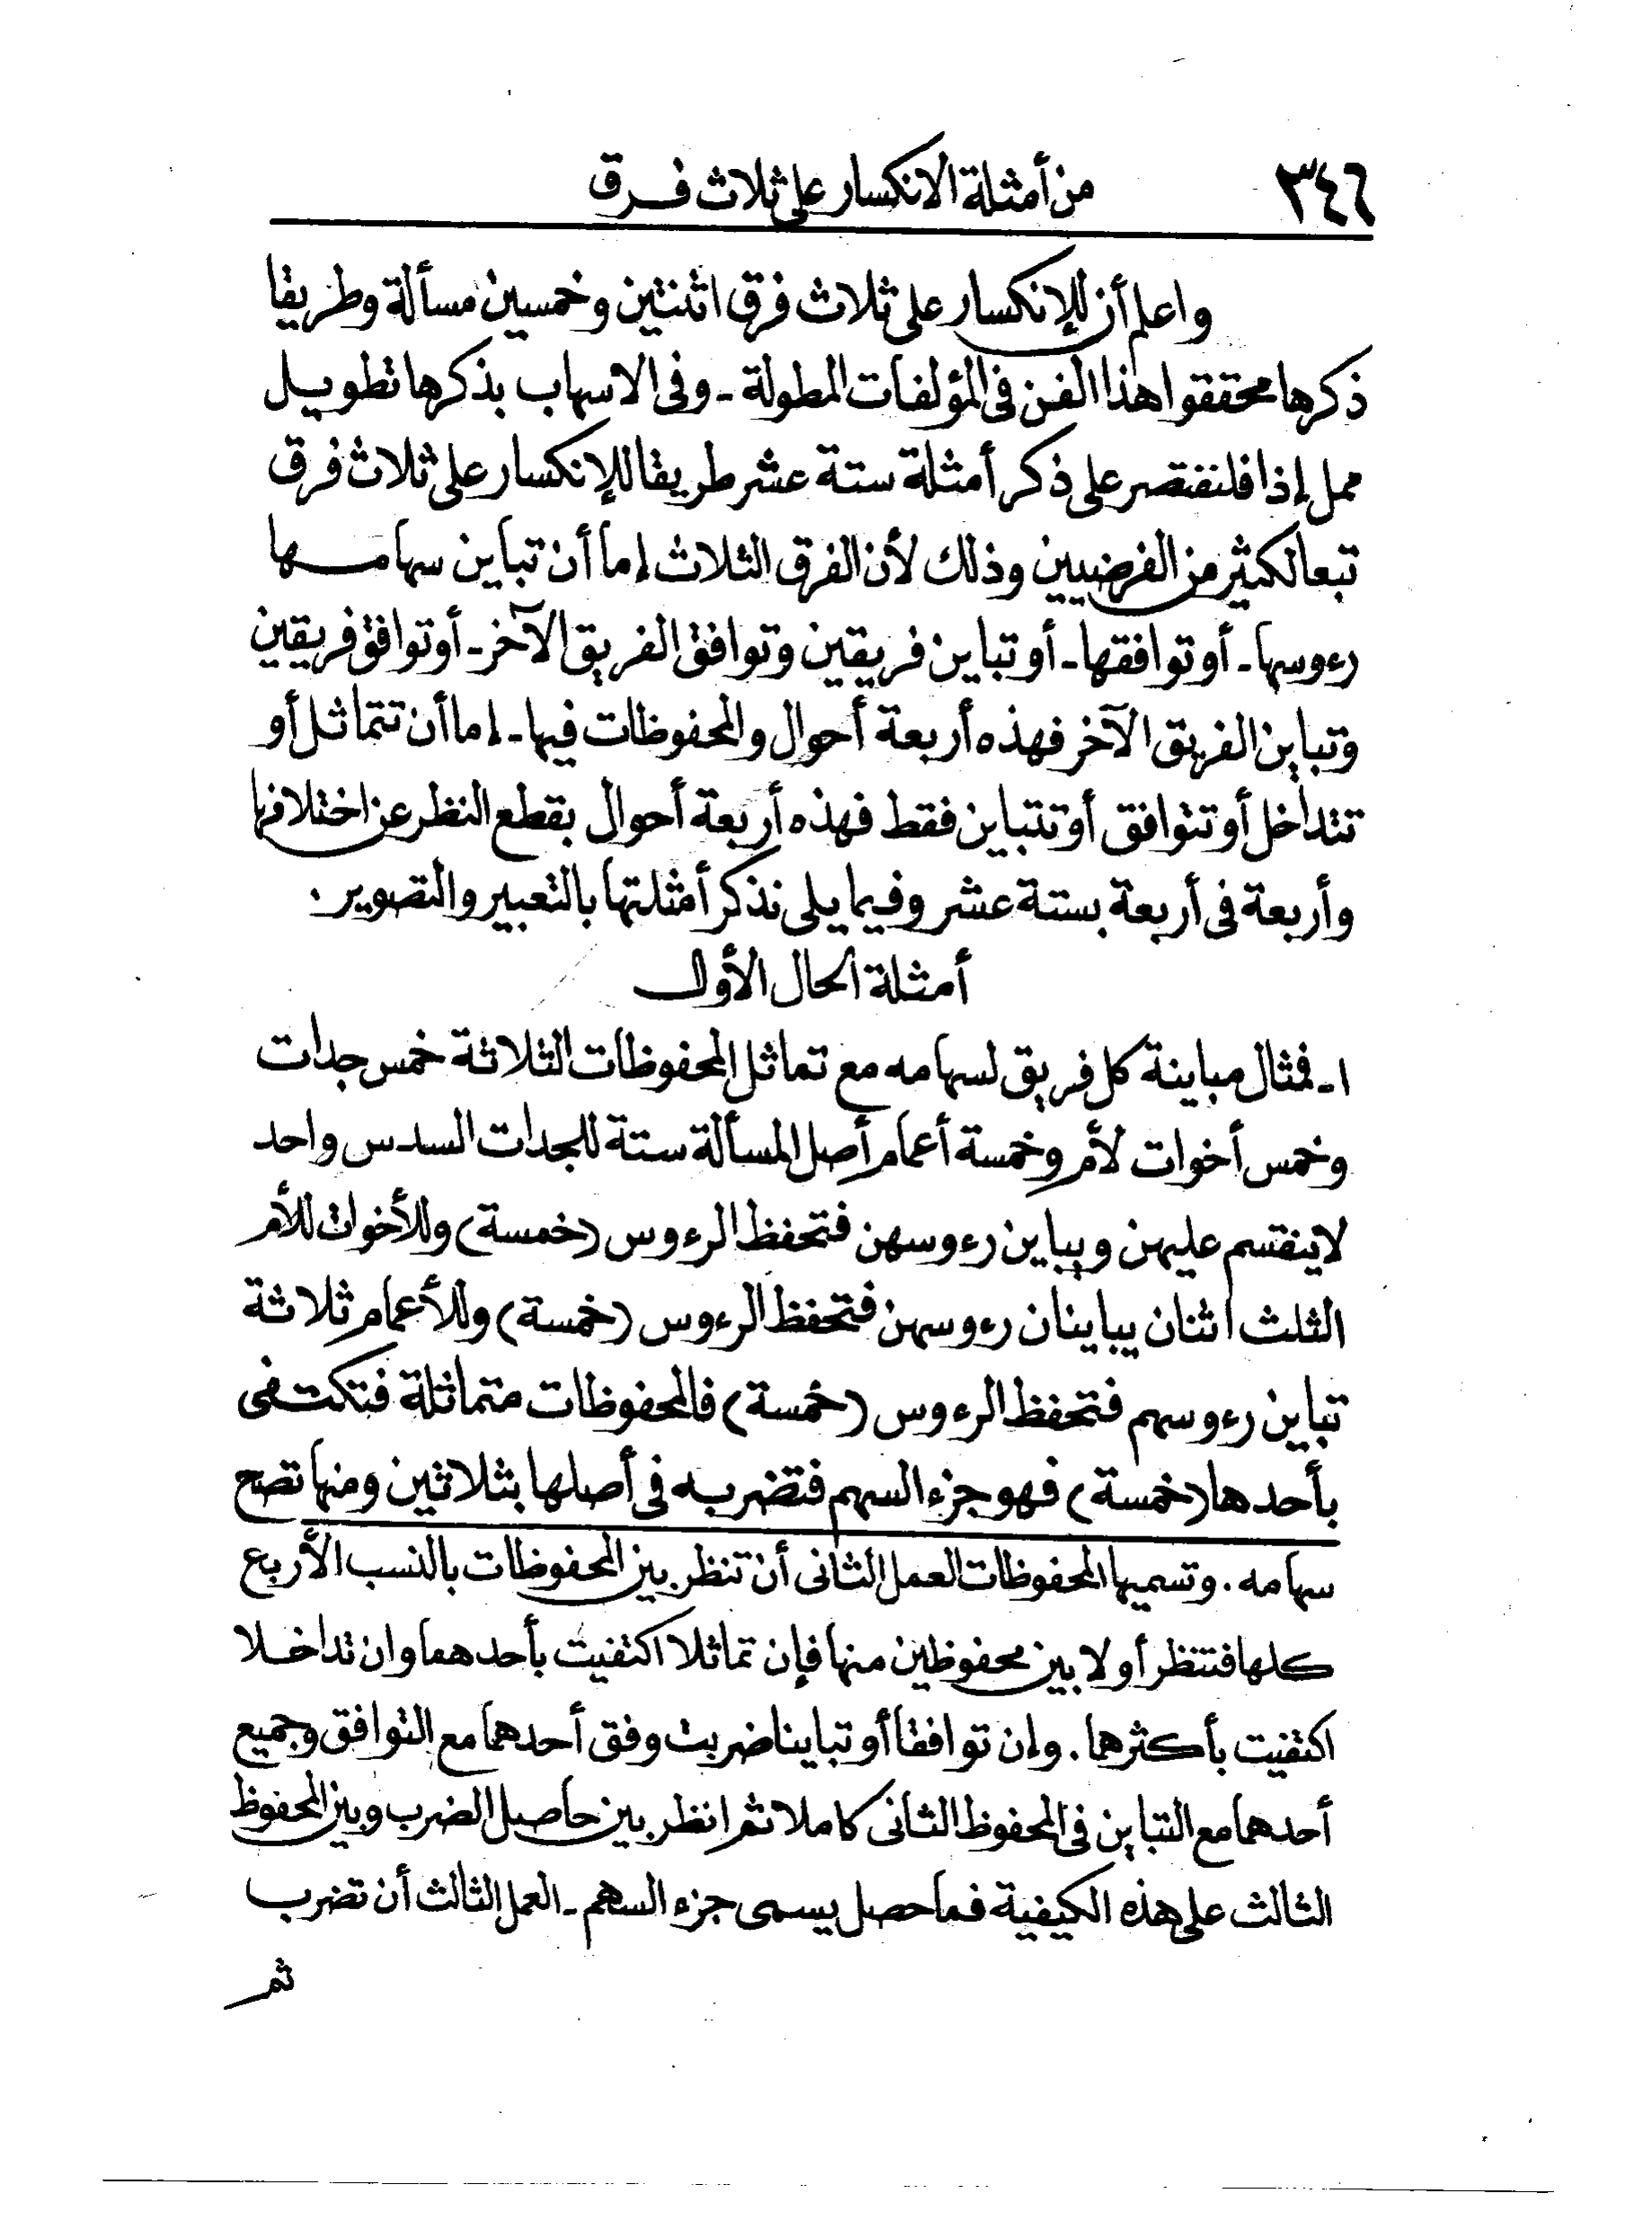 ٣٤٦ من أمثلة الانكسار على ثلاث فرق
واعلم أن للإنكسار على ثلاث فرق اثنتين وخمسين مسألة وطريقا
ذكرها محققوا هذا الفن في المؤلفات المطولة - وفى الاسهاب بذكرها تطويل
ممل إذا فلنقتصر على ذكر أمثلة ستة عشر طريقا للإنكسار على ثلاث فرق
تبعا لكثير من الفرضيين وذلك لأن الفرق الثلاث إما أن تباين سهامها
رءوسها - أو توافقها - أو تباين فريقين وتوافق الفريق الآخر - أو توافق فريقين
وتباين الفريق الآخر فهذه أربعة أحوال والمحفوظات فيها - إما أن تتماثل أو
تتداخل أو تتوافق أو تتباين فقط فهذه أربعة أحوال بقطع النظر عن اختلافها
وأربعة فى أربعة بستة عشر وفيما يلى نذكر أمثلتها بالتعبير والتصوير .
أمثلة الحال الأول
١- فمثال مباينة كل فريق لسهامه مع تماثل المحفوظات الثلاثة خمس جدات
وخمس أخوات لأم وخمسة أعمام أصل المسألة ستة للجدات السدس واحد
لا ينقسم عليهن ويباين رءوسهن فتحفظ الرءوس (خمسة) وللأخوات للأم
الثلث اثنان يباينان رءوسهن فتحفظ الرءوس (خمسة) وللأعمام ثلاثة
تباين رءوسهم فتحفظ الرءوس (خمسة) فالمحفوظات متماثلة فتكتفى
بأحدها (خمسة) فهو جزء السهم فتضربه فى أصلها بثلاثين ومنها تصح
سهامه . وتسميها المحفوظات العمل الثانى أن تنظر بين المحفوظات بالنسب الأربع
كلها فتنظر أولا بين محفوظين منها فإن تماثلا اكتفيت بأحدهما وان تداخلا
اكتفيت بأكثرهما . وإن توافقا أو تباينا ضربت وفق أحدهما مع التوافق وجميع
أحدهما مع التباين فى المحفوظ الثانى كاملا ثم انظر بين حاصل الضرب وبين المحفوظ
الثالث على هذه الكيفية فما حصل يسمى جزء السهم - العمل الثالث أن تضرب
ثم